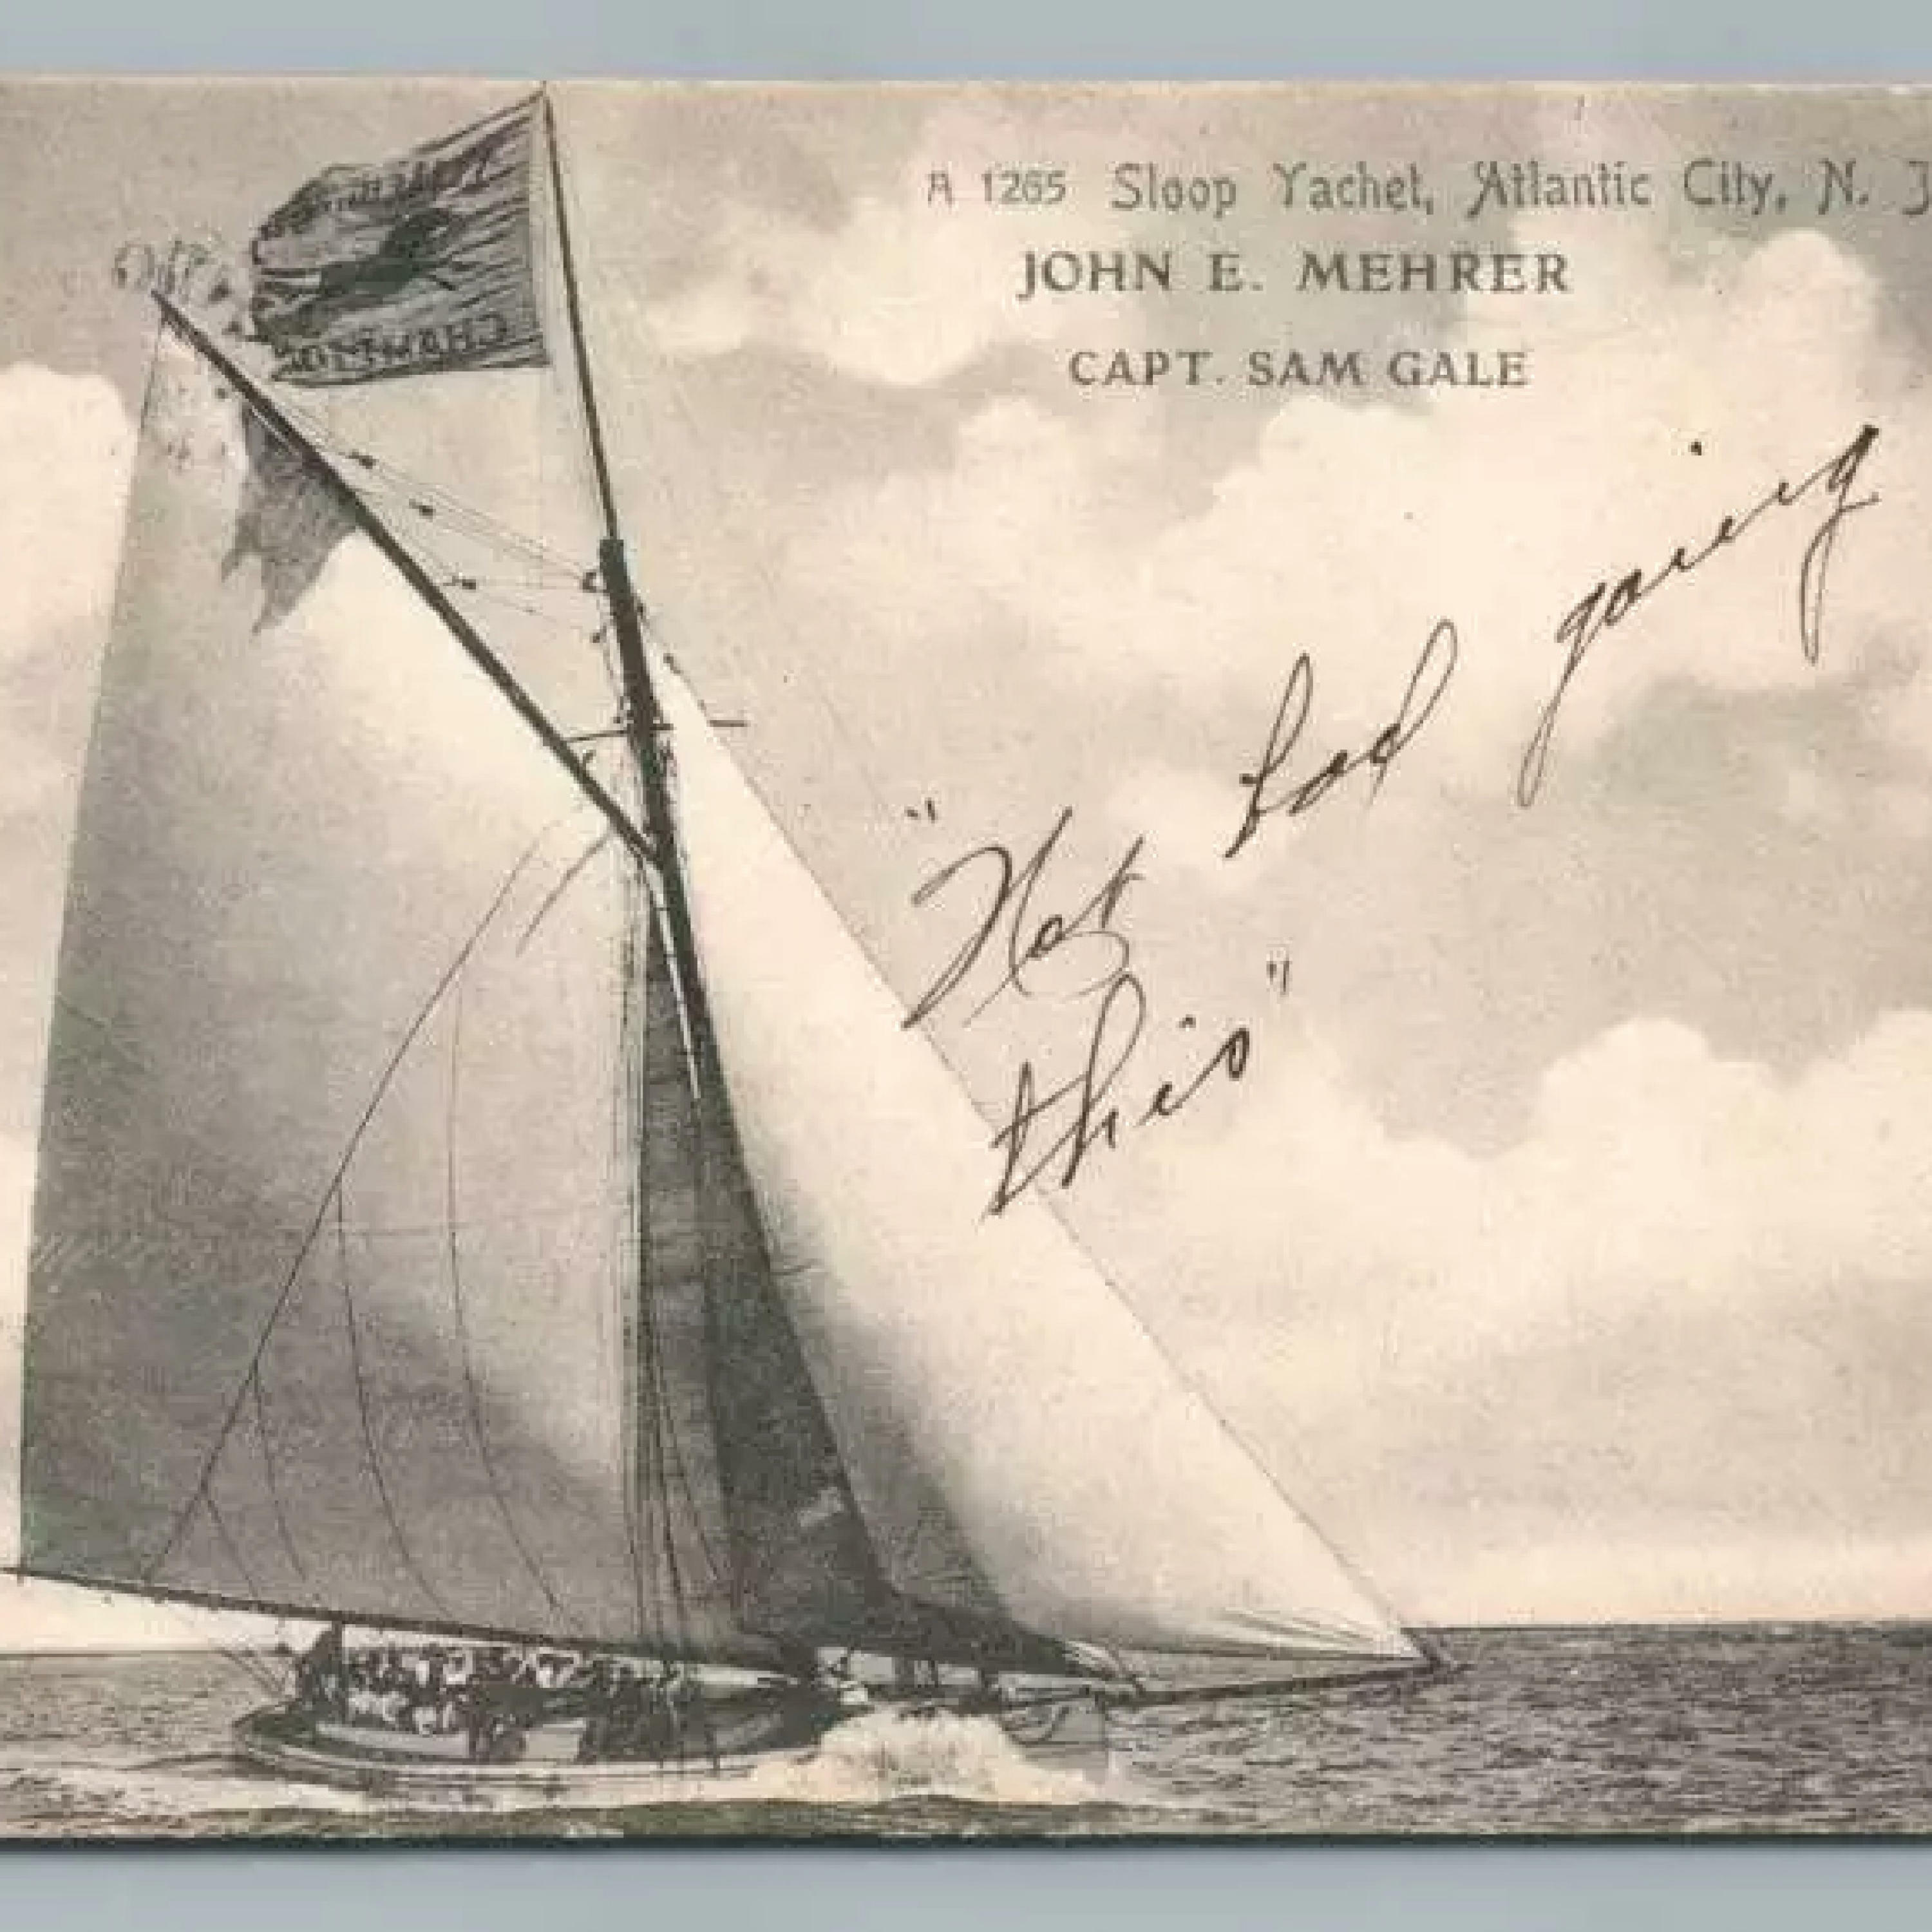 A 1265 Sloop Yachet, Atlantic City, N. J
JOHN E. MEHRER
CAPT. SAM GALE
"Not bad going
this"
CHAMPION